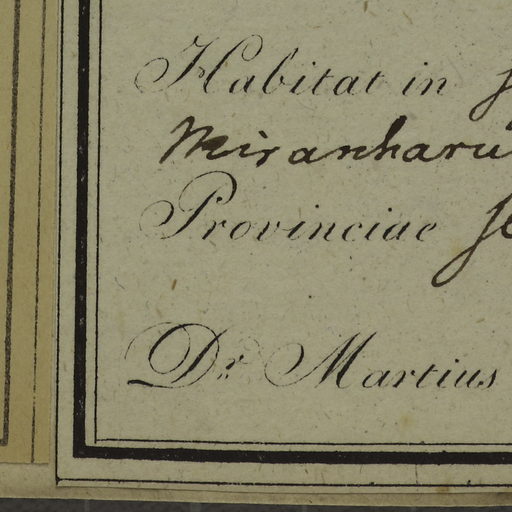 Habitat in
Miranharu
Provinciae
Dr. Martius